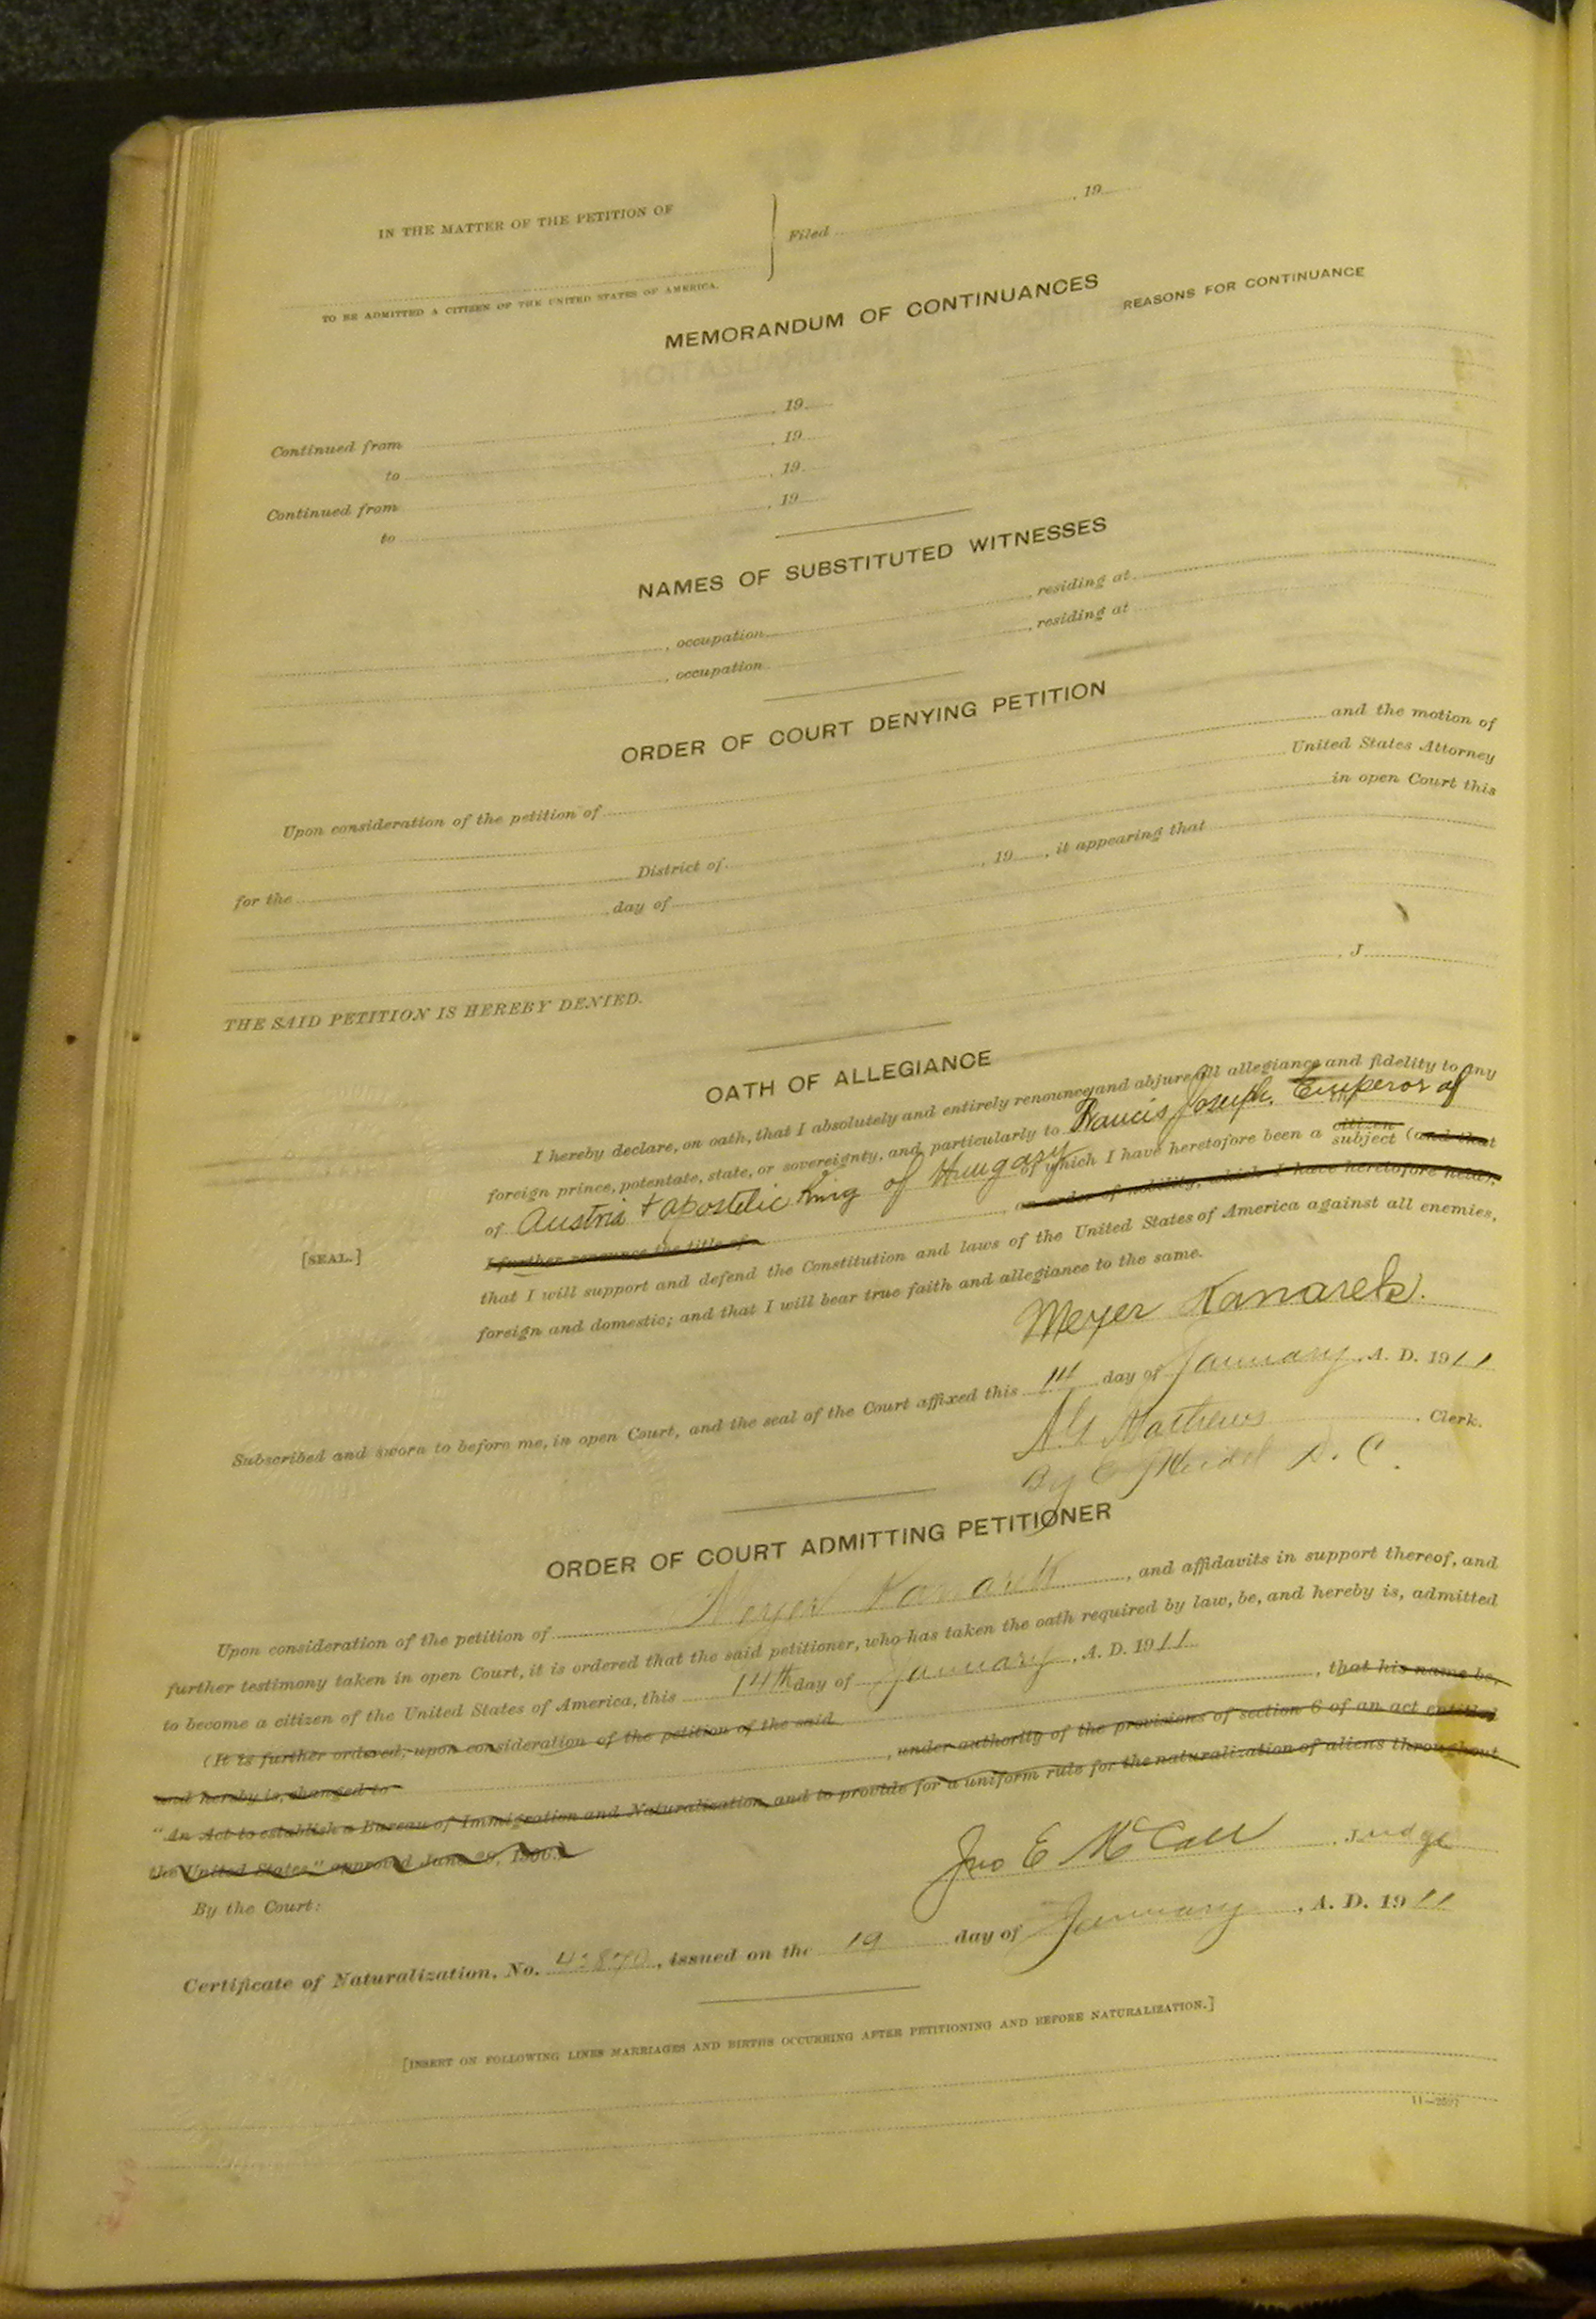 IN THE MATTER OF THE PETITION OF
Filed , 19
TO BE ADMITTED A CITIZEN OF THE UNITED STATES OF AMERICA.
MEMORANDUM OF CONTINUANCES
REASONS FOR CONTINUANCE
Continued from , 19
to , 19
Continued from , 19
to , 19
NAMES OF SUBSTITUTED WITNESSES
, occupation , residing at
, occupation , residing at
ORDER OF COURT DENYING PETITION
Upon consideration of the petition of and the motion of
United States Attorney
for the District of in open Court this
day of , 19 , it appearing that
THE SAID PETITION IS HEREBY DENIED.
, J
OATH OF ALLEGIANCE
I hereby declare, on oath, that I absolutely and entirely renounce and abjure all allegiance and fidelity to any
foreign prince, potentate, state, or sovereignty, and particularly to Francis Joseph, Emperor of
of Austria + apostolic King of Hungary of which I have heretofore been a citizen subject (and that
I further renounce the title of , an order of nobility, which I have heretofore held);
that I will support and defend the Constitution and laws of the United States of America against all enemies,
foreign and domestic; and that I will bear true faith and allegiance to the same.
[SEAL.]
Meyer Kanarek.
Subscribed and sworn to before me, in open Court, and the seal of the Court affixed this 14 day of January, A. D. 1911
Mathews , Clerk.
By D. C.
ORDER OF COURT ADMITTING PETITIONER
Upon consideration of the petition of Meyer Kanarek , and affidavits in support thereof, and
further testimony taken in open Court, it is ordered that the said petitioner, who has taken the oath required by law, be, and hereby is, admitted
to become a citizen of the United States of America, this 14th day of January , A. D. 1911
(It is further ordered, upon consideration of the petition of the said , that his name be,
and hereby is, changed to , under authority of the provisions of section 6 of an act entitled
"An Act to establish a Bureau of Immigration and Naturalization, and to provide for a uniform rule for the naturalization of aliens throughout
the United States," approved June 29, 1906.)
By the Court:
Jno E McCall , Judge
Certificate of Naturalization, No. , issued on the 19 day of January , A. D. 1911
[INSERT ON FOLLOWING LINES MARRIAGES AND BIRTHS OCCURRING AFTER PETITIONING AND BEFORE NATURALIZATION.]